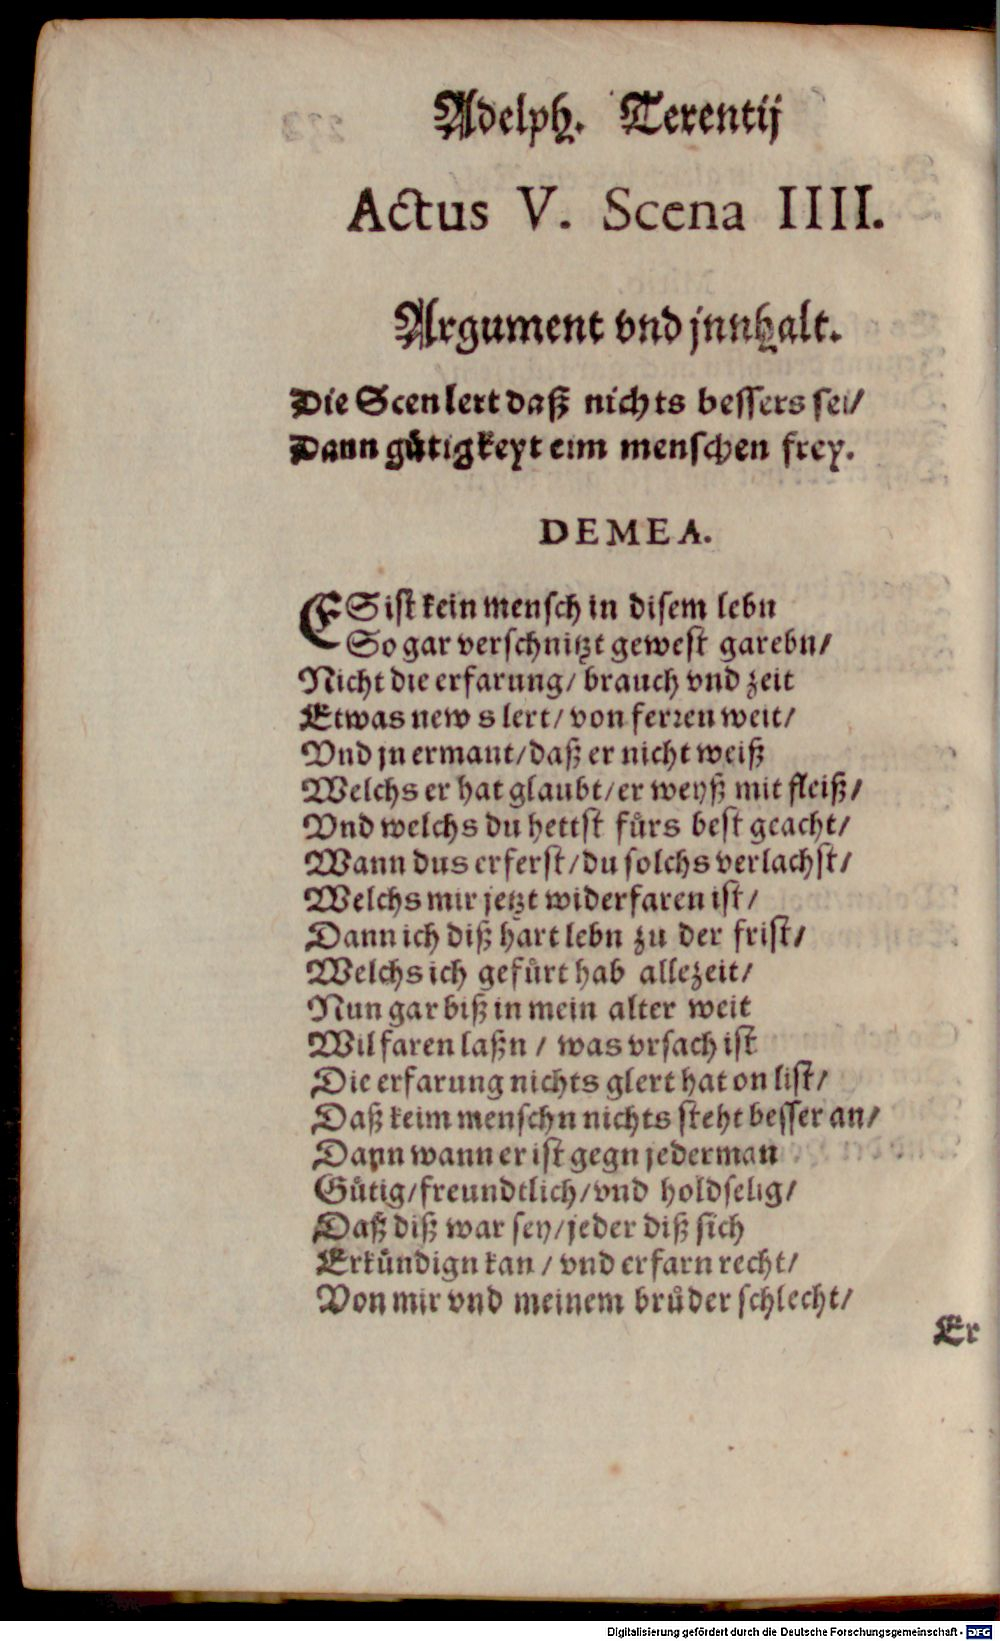 Adelph. Terentij
Actus V. Scena IIII.
Argument vnd jnnhalt.
Die Scen lert daß nichts bessers sei/
Dann gůtigkeyt eim menschen frey.
DEMEA.
ES ist kein mensch in disem lebn
So gar verschnitzt gewest garebn/
Nicht die erfarung/ brauch vnd zeit
Etwas news lert/ von ferren weit/
Vnd jn ermant/ daß er nicht weiß
Welchs er hat glaubt/ er weyß mit fleiß/
Vnd welchs du hettst fůrs best geacht/
Wann dus erferst/ du solchs verlachst/
Welchs mir jetzt widerfaren ist/
Dann ich diß hart lebn zu der frist/
Welchs ich gefůrt hab allezeit/
Nun gar biß in mein alter weit
Wil faren laßn / was vrsach ist
Die erfarung nichts glert hat on list/
Daß keim menschn nichts steht besser an/
Dann wann er ist gegn jederman
Gůtig/ freundtlich/ vnd holdselig/
Daß diß war sey/ jeder diß sich
Erkůndign kan / vnd erfarn recht/
Von mir vnd meinem brůder schlecht/
Er
Digitalisierung gefördert durch die Deutsche Forschungsgemeinschaft - DFG